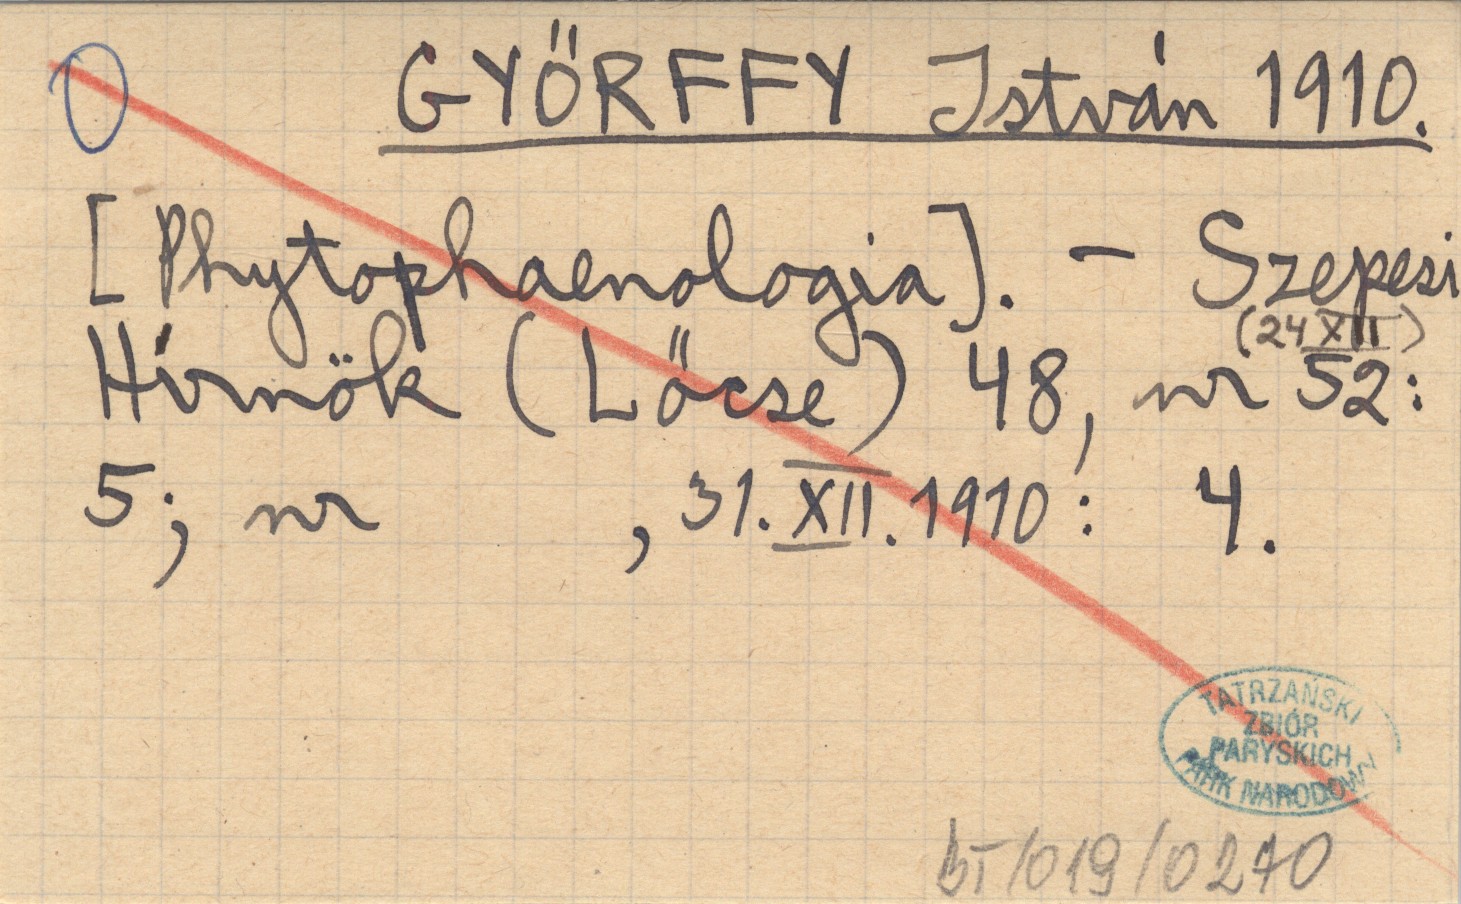 GYŐRFFY István 1910.
[Phytophaenologia]. – Szepesi
(24 XII)
Hírnök (Lőcse) 48, nr 52:
5; nr , 31. XII. 1910: 4.
TATRZAŃSKI
ZBIÓR
PARYSKICH
PARK NARODOWY
BT/019/0270